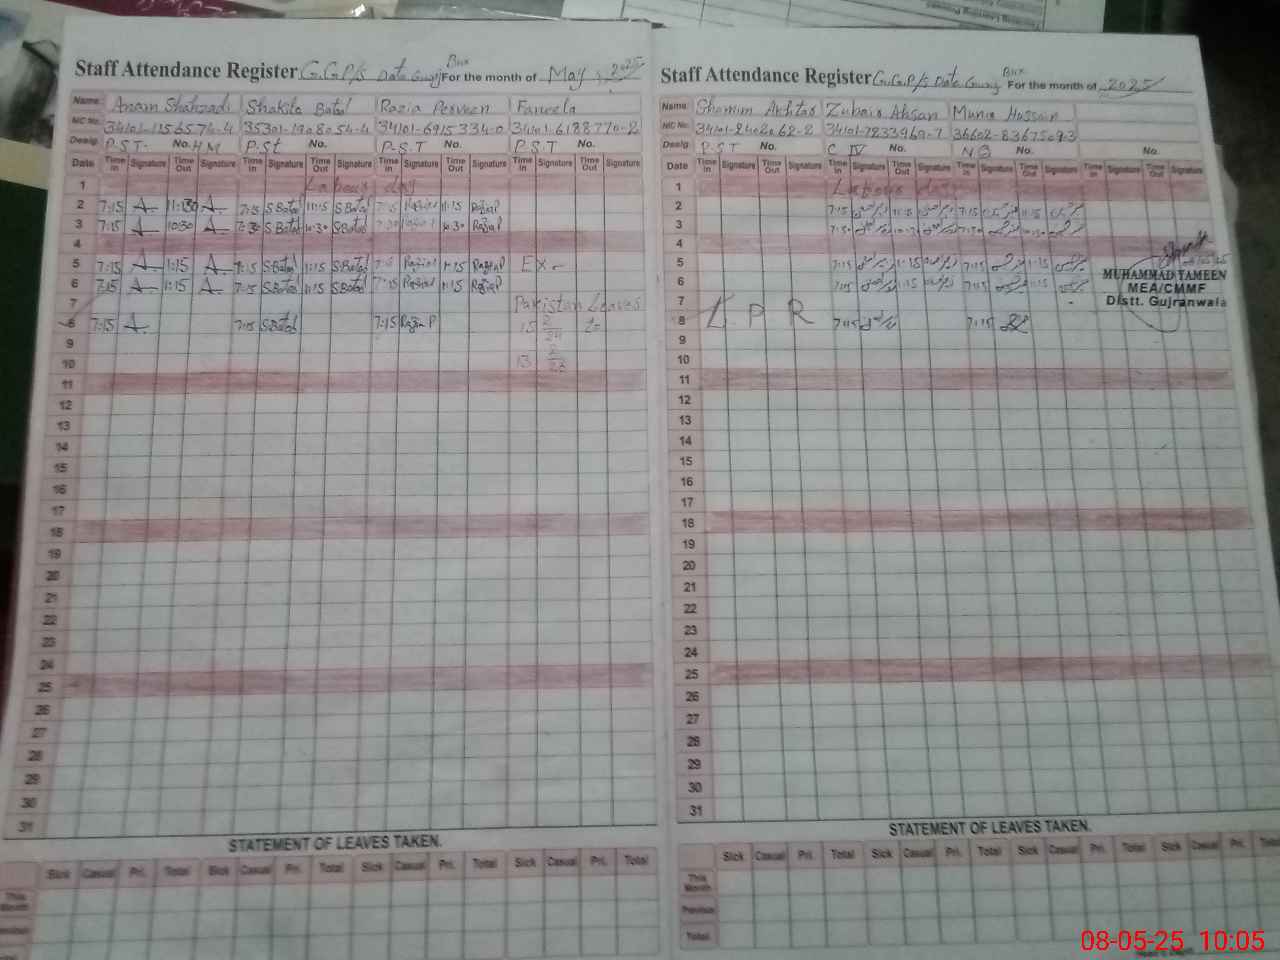 Staff Attendance Register G.G.P/S Data Gunj Bux For the month of May 2025
Name Anam Shahzadi Shakila Batol Razia Perveen Faneela
NIC No. 34101-1156574-4 35301-1908054-4 34101-6915334-0 34101-6188770-2
Desig P.S.T. No. H M P.St No. P.S.T No. P.S.T
Date Time In Signature Time Out Signature Time In Signature Time Out Signature Time In Signature Time Out Signature Time In Signature Time Out Signature
1 Labour day
2 7:15 A 11:30 A 7:15 S.Batol 11:15 S.Batol 7:15 11:15 Razia P
3 7:15 A 10:30 A 7:30 S.Batol 10:30 S.Batol 10:30 Razia P
4
5 7:15 A 1:15 A 7:15 S.Batol 1:15 S.Batol Razia P 1:15 Razia P Ex
6 7:15 A 1:15 A 7:15 S.Batol 1:15 S.Batol 7:15 Razia P 1:15 Razia P
7 Pakistan Leaves
8 7:15 A 7:15 S.Batol 7:15 Razia P 15 2/24 to
9
10 13 2/26
11
12
13
14
15
16
17
18
19
20
21
22
23
24
25
26
27
28
29
30
31
STATEMENT OF LEAVES TAKEN.
Sick Casual Pri. Total Sick Casual Pri. Total Sick Casual Pri. Total Sick Casual Pri. Total
This Month
Previous
Total
Staff Attendance Register G.G.P/S Data Gunj Bux For the month of 2025
Name Shamim Akhtar Zubair Ahsan Munir Hussain
NIC No. 34101-2402062-2 34101-7233969-7 36602-8367509-3
Desig P.S T No. C IV No. N B No. No.
Date Time In Signature Time Out Signature Time In Signature Time Out Signature Time In Signature Time Out Signature Time In Signature Time Out Signature
1 Labour day
2 7:15 11:15 7:15 11:15
3 7:30 10:30 7:30 10:30
4
5 7:15 1:15 7:15 1:15
6 7:15 1:15 7:15 1:15
7
8 L P R 7:15 7:15
9
10
11
12
13
14
15
16
17
18
19
20
21
22
23
24
25
26
27
28
29
30
31
MUHAMMAD TAMEEN
MEA/CMMF
Distt. Gujranwala
STATEMENT OF LEAVES TAKEN.
Sick Casual Pri. Total Sick Casual Pri. Total Sick Casual Pri. Total Sick Casual Pri. Total
This Month
Previous
Total
08-05-25 10:05